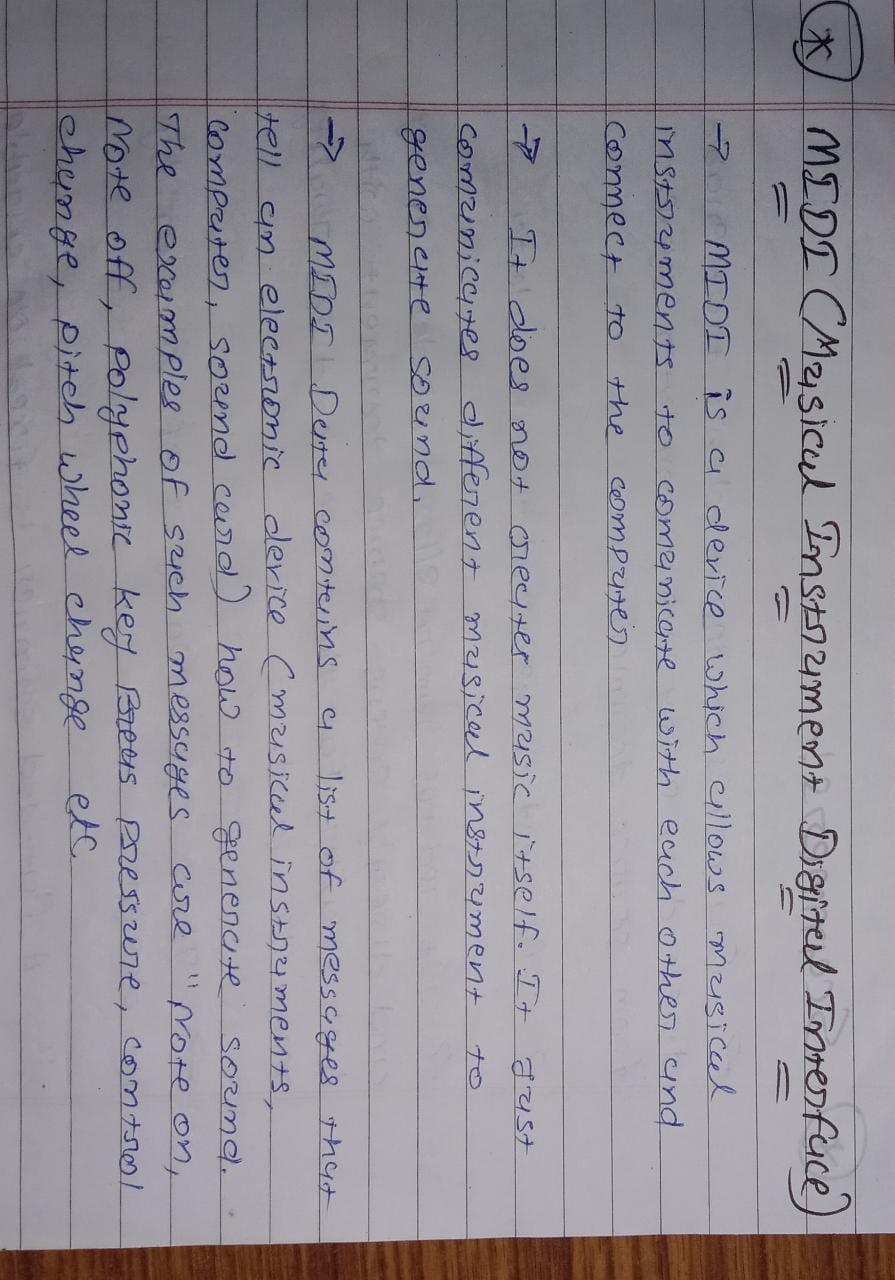 * MIDI (Musical Instrument Digital Interface)
→ MIDI is a device which allows musical
instruments to comunicate with each other and
connect to the computer
→ It does not creates music itself. It Just
comunicates different musical instrument to
generate sound.
→ MIDI Data contains a list of messages that
tell an electronic device (musical instruments,
computer, sound card) how to generate sound.
The examples of such messages are "Note on,
Note off, polyphonic key pressure, control
change, pitch wheel change etc